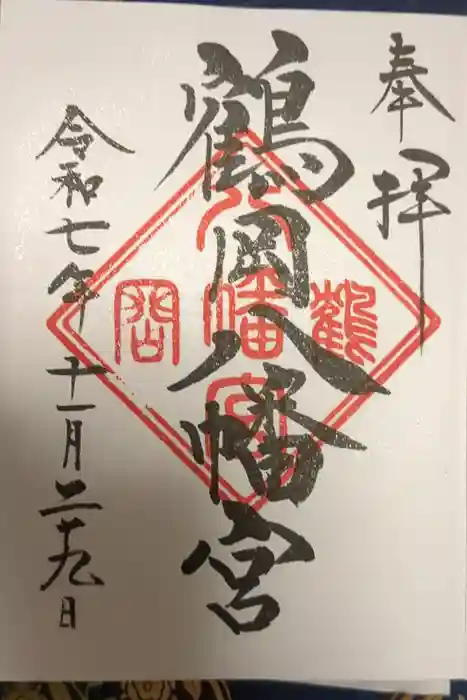 奉拝
鶴岡八幡宮
令和七年十一月二十九日
鶴
八幡宮
岡